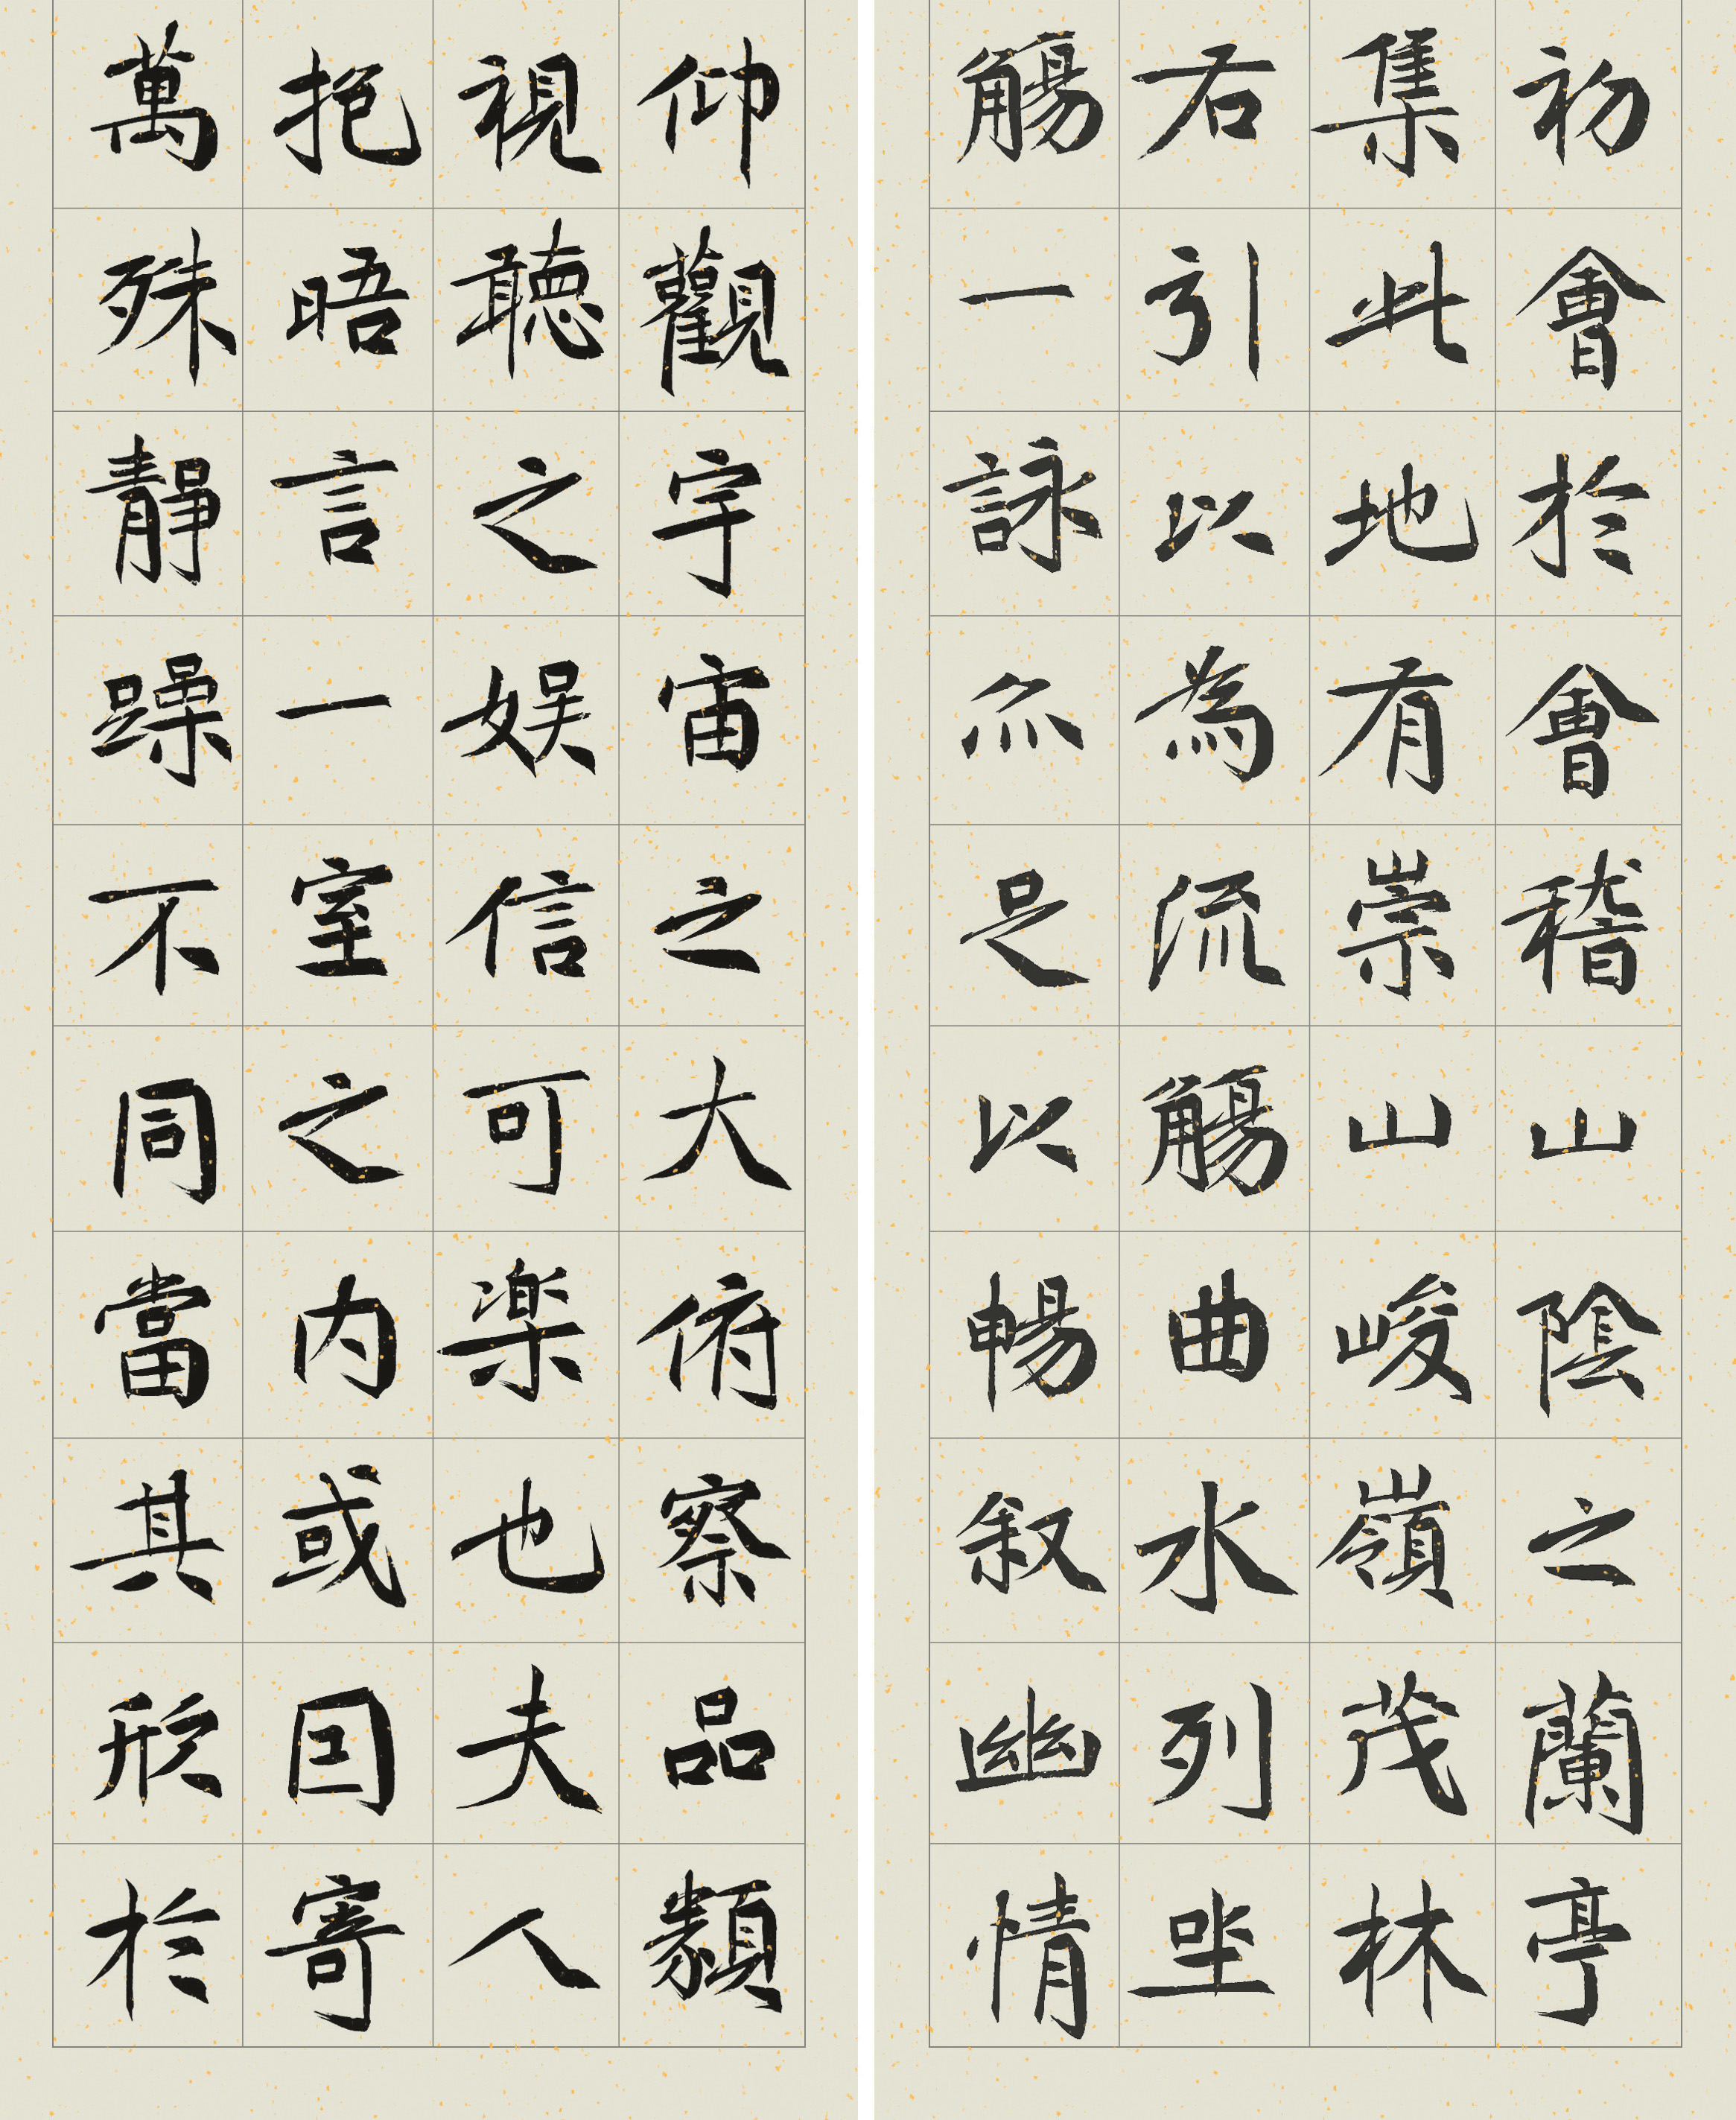 初會於會稽山陰之蘭亭
集此地有崇山峻嶺茂林
右引以為流觴曲水列坐
觴一詠亦足以暢叙幽情
仰觀宇宙之大俯察品類
視聽之娱信可楽也夫人
抱晤言一室之内或因寄
萬殊靜躁不同當其欣於